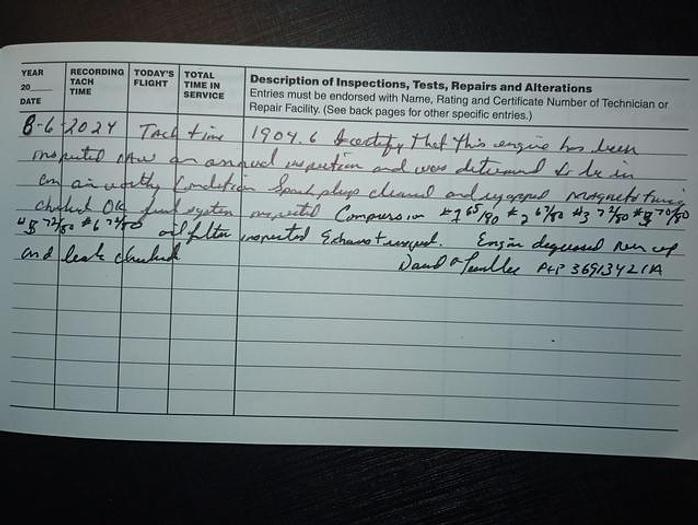 YEAR
20
DATE
RECORDING
TACH
TIME
TODAY'S
FLIGHT
TOTAL
TIME IN
SERVICE
Description of Inspections, Tests, Repairs and Alterations
Entries must be endorsed with Name, Rating and Certificate Number of Technician or
Repair Facility. (See back pages for other specific entries.)
8-6-2024 Tach time 1904.6 I certify that this engine has been
inspected an annual inspection and was determined to be in
an airworthy condition Spark plugs cleaned and regapped magneto timing
checked OK fuel system inspected Compression #1 65/80 #2 67/80 #3 72/80 70/80
#5 72/80 #6 72/80 oil filter inspected Exhaust inspected. Engine degreased run up
and leak checked